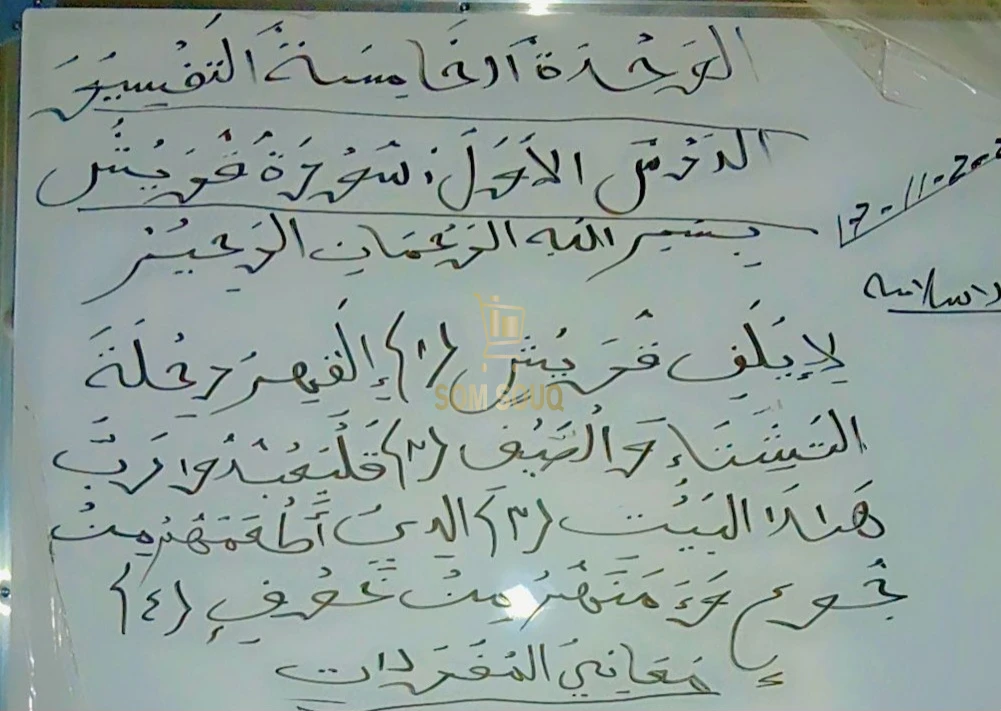 الوَحْدَةُ الخَامِسَةُ التَفْسِيرُ
الدَرْسُ الأَوَلُ: سُورَةُ قُرَيْشٍ
17-11-202
بِسْمِ اللَّهِ الرَحْمَانِ الرَحِيمِ
SOM SOUQ
لِإِيْلَفِ قُرَيْشٍ (١) إِلَفِهِمْ رِحْلَةَ
الشِتَاءِ وَالْصَيْفِ (٢) فَلْيَعْبُدُوا رَبَّ
هَذَا البَيْت (٣) الذِي أَطْعَمَهُمْ مِنْ
جُوعٍ وَءَمَنَهُمْ مِنْ خَوْفٍ (٤)
مَعَانِي المُفْرَدَات